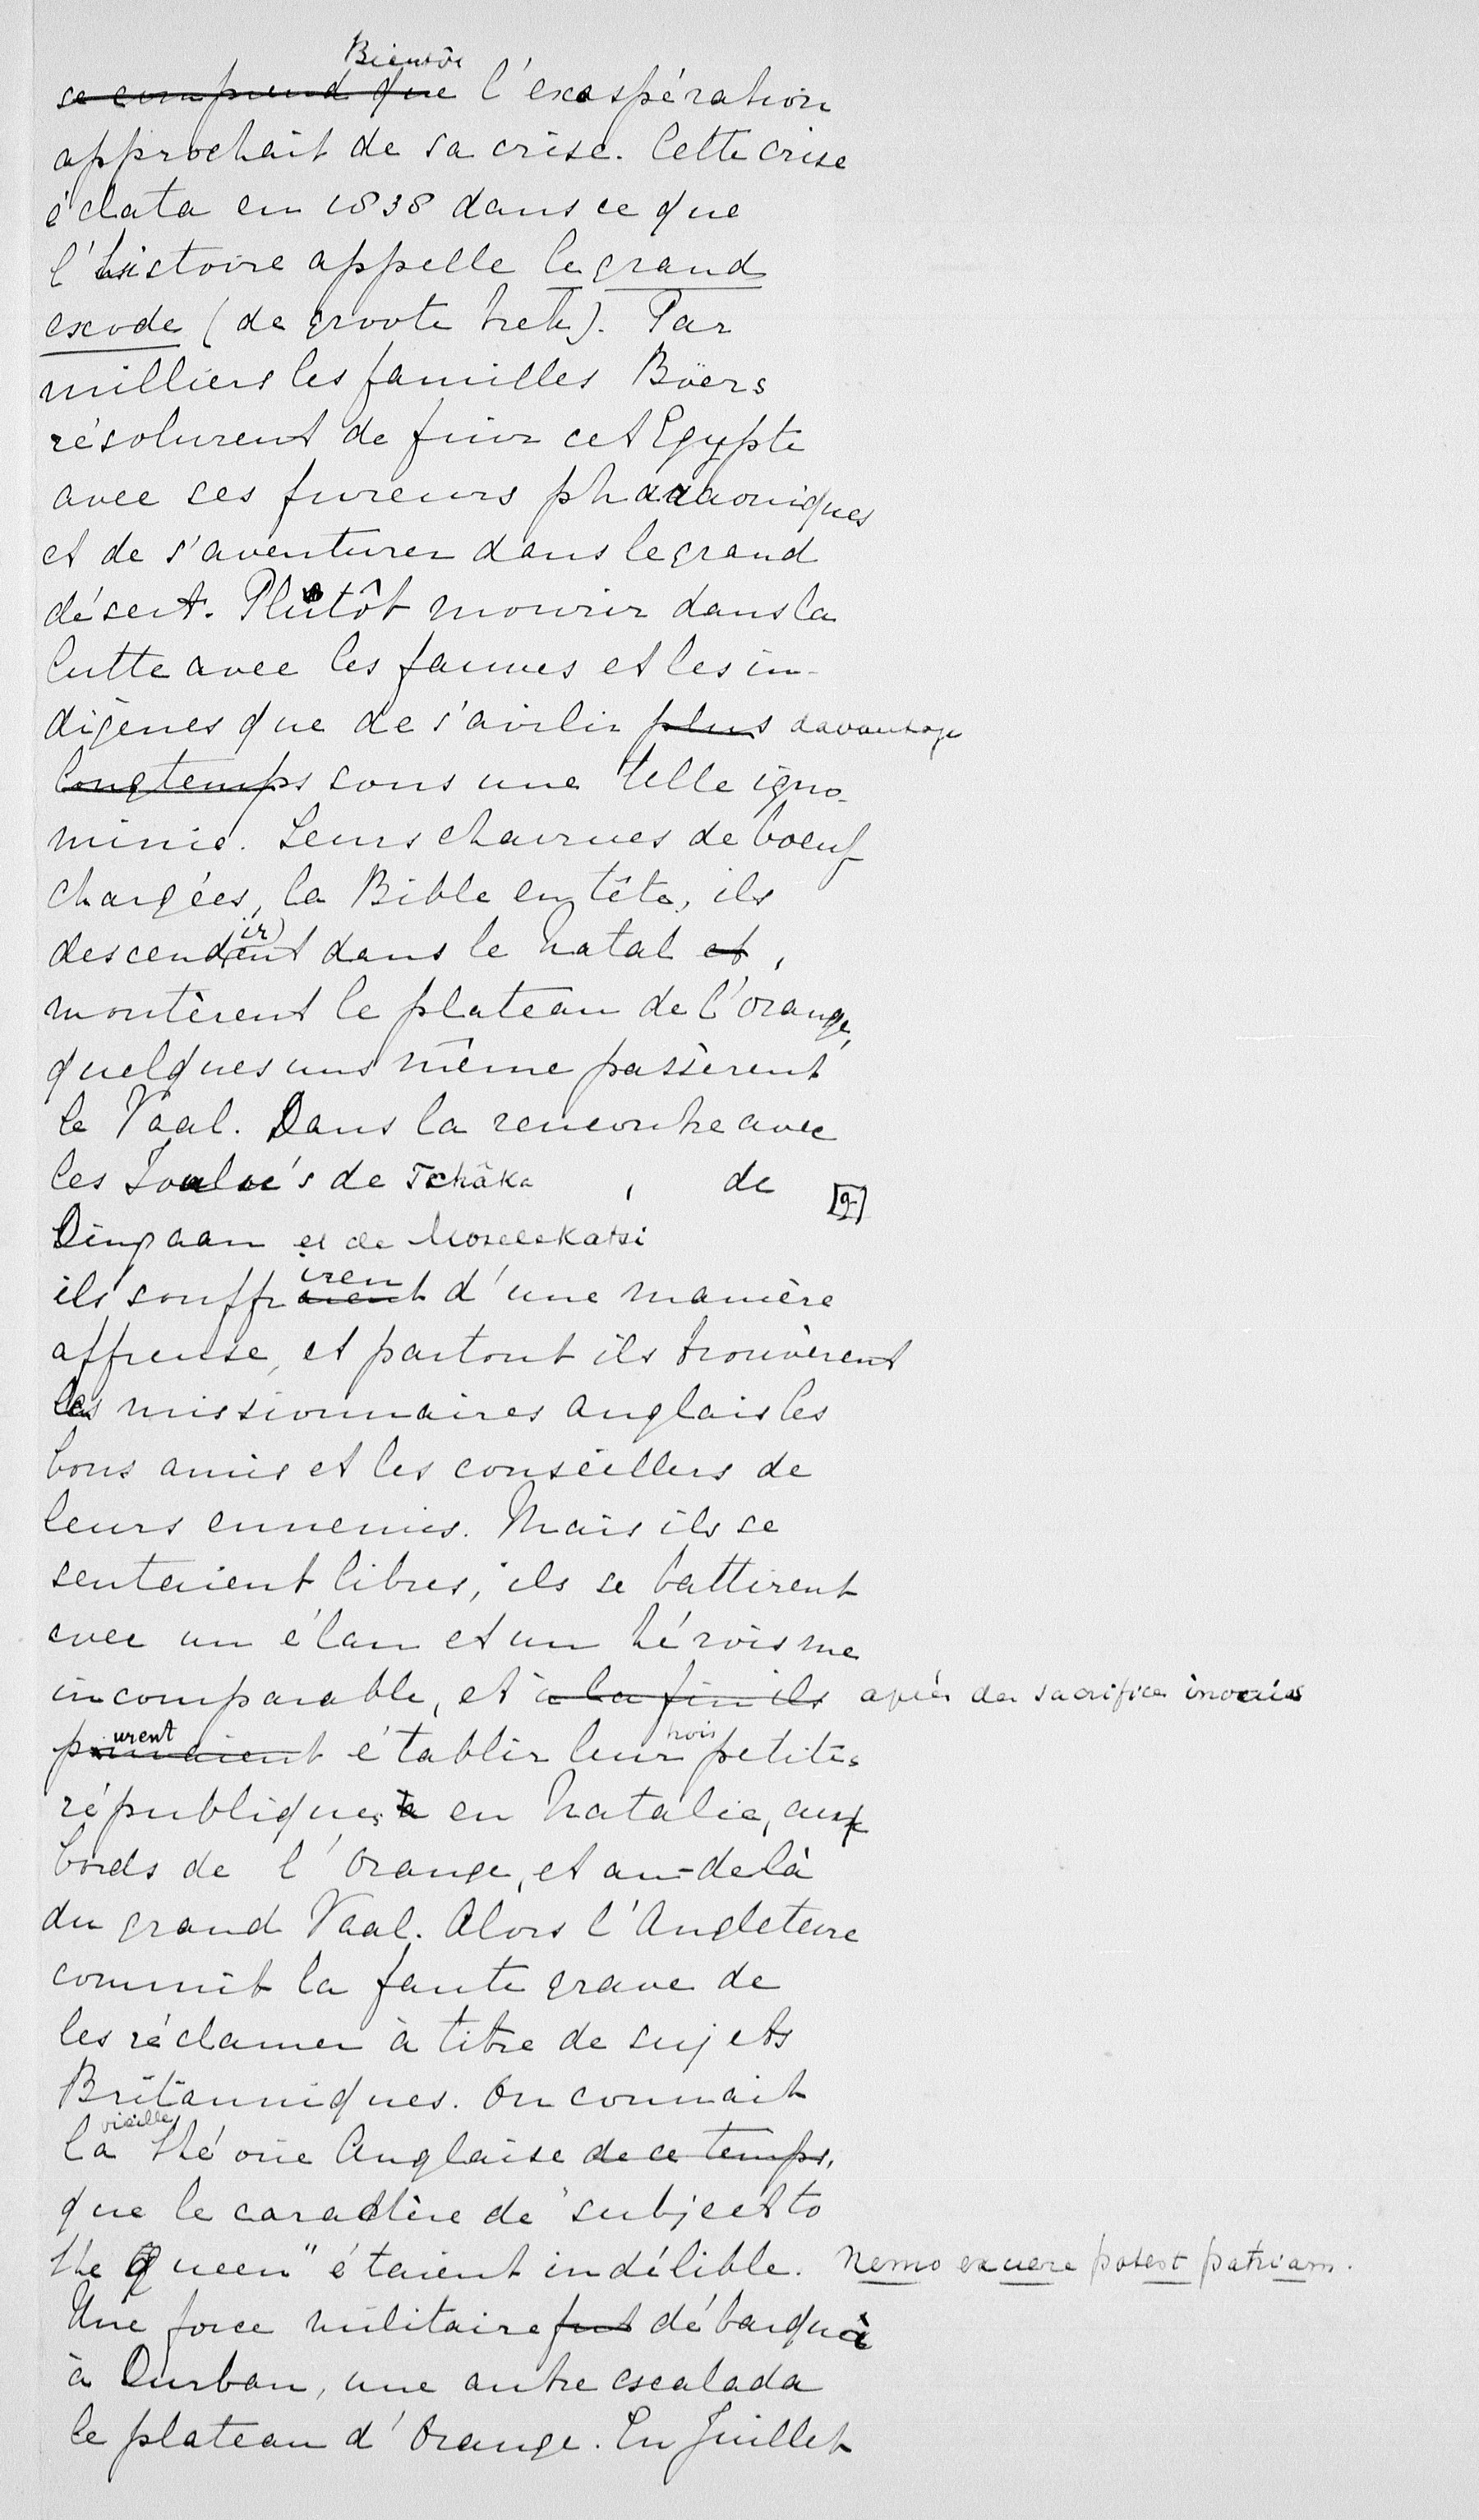 Bientôt
se comprend que l'exaspération
approchait de sa crise. Cette crise
éclata en 1838 dans ce que
l'histoire appelle le grand
exode (de groote trek). Par
milliers les familles Boërs
résolurent de fuir cet Egypte
avec ses fureurs pharaoniques
et de s'aventurer dans le grand
désert. Plutôt mourir dans la
lutte avec les fauves et les in-
digènes que de s'avilir plus davantage
longtemps sous une telle igno-
minie. Leurs charrues de boeuf
chargées, la Bible en tête, ils
descendirent dans le Natal et,
montèrent le plateau de l'Orange,
quelques uns même passèrent
le Vaal. Dans la rencontre avec
les Zoulou's de Tchâka , de [9]
Dingaan et de Moselekatsi
iren
ils souffraient d'une manière
affreuse, et partout ils trouvèrent
les missionnaires anglais les
bons amis et les conseillers de
leurs ennemis. Mais ils se
sentaient libres, ils se battirent
avec un élan et un héroisme
incomparable, et à la fin ils après des sacrifices inouies
urent trois
pouvaient établir leur petites
républiques en Natalie, aux
bords de l'Orange, et au-delà
du grand Vaal. Alors l'Angleterre
commit la faute grave de
les réclamer à titre de sujets
Britanniques. On connait
vieille
la théorie Anglaise de ce temps,
que le caractère de "subject to
the Queen" étaient indélible. Nemo exuere potest patriam.
Une force militaire fut débarqua
à Durban, une autre escalada
le plateau d'Orange. En Juillet